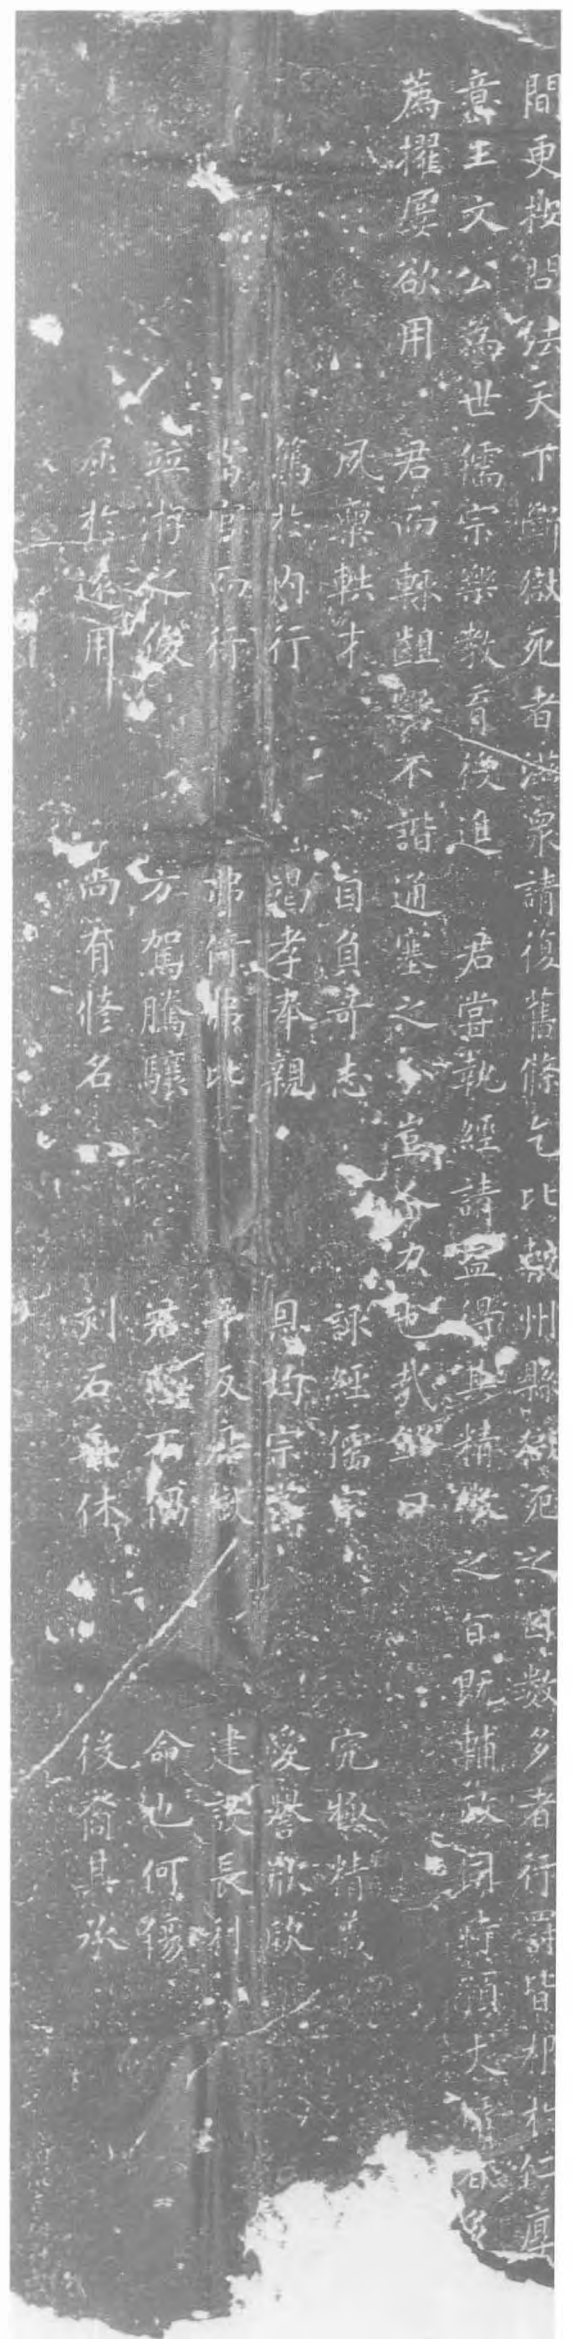 間更按問法天下斷獄死者滋衆請復舊條乞比較州縣獄死之因數多者行罰皆本於仁厚
意王文公為世儒宗樂教育後進　君嘗執經請益得其精微之旨既輔政同時顯大
薦擢屢欲用　君而輒齟齬不諧通塞之分豈人力也哉銘曰
夙稟軼才　自負奇志　諏經儒宗　究極精義
篤於內行　竭孝奉親　具均宗族　愛譽欣欣
當官而行　弗脩弗比　平反庶獄　建設長利
並游之俊　方駕騰驤　君獨不偶　命也何傷
屈於遠用　尚有修名　刻石垂休　後裔具承